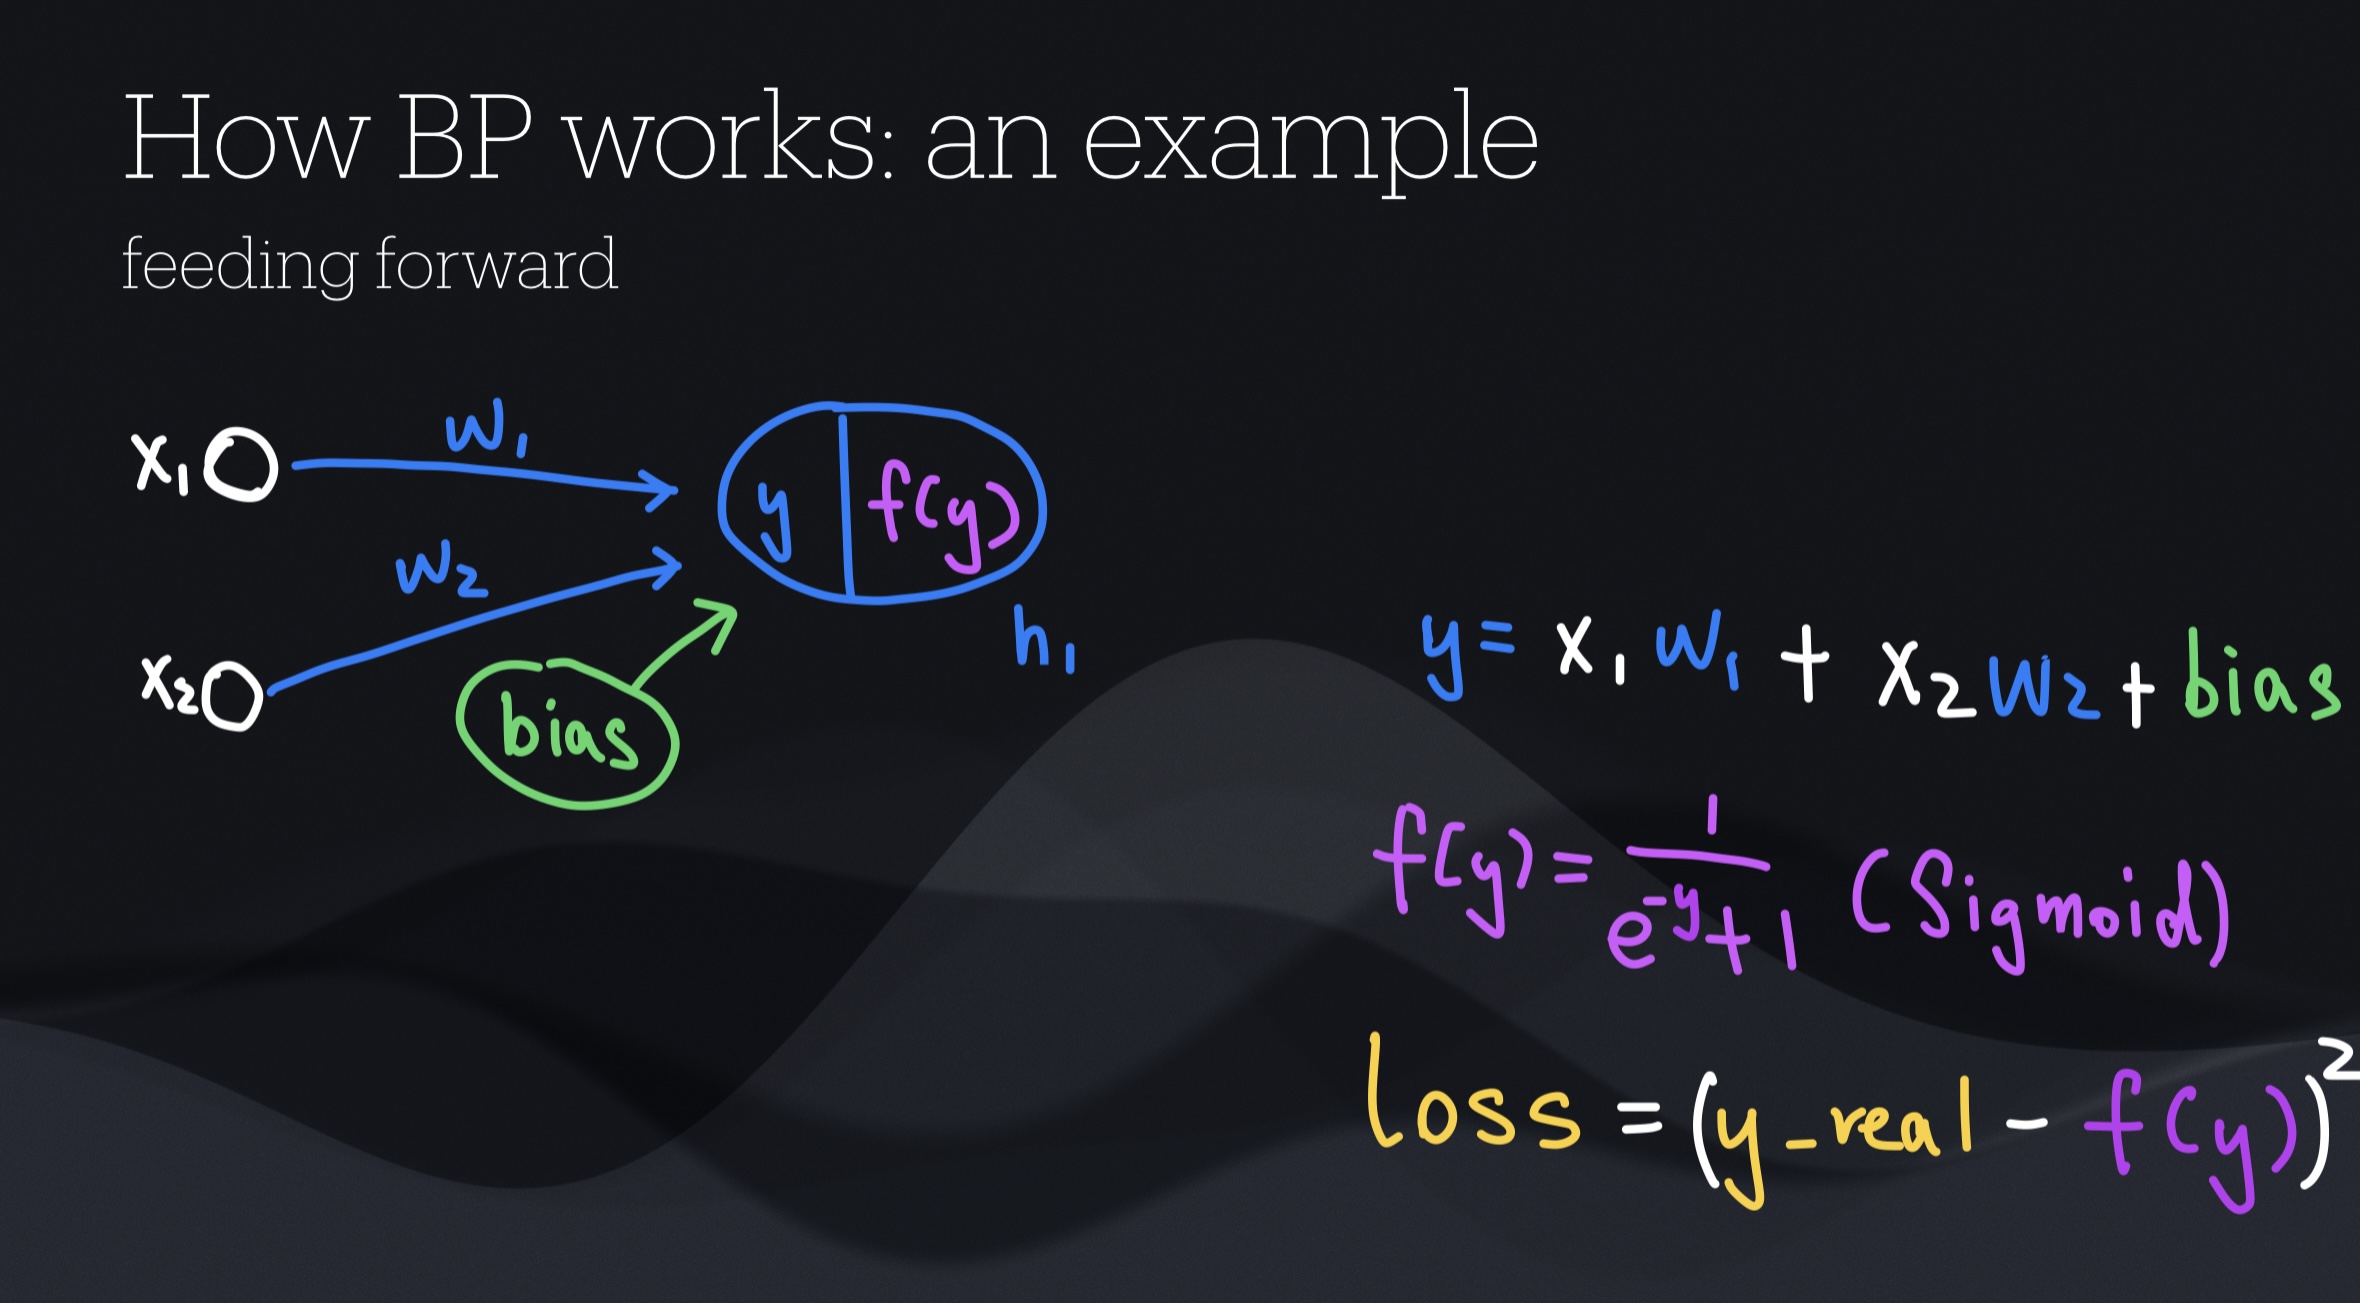 How BP works: an example
feeding forward
x₁ w₁
y f(y)
w₂
h₁
x₂
bias
y = x₁w₁ + x₂w₂ + bias
f(y) = 1/(e^-y + 1) (Sigmoid)
loss = (y_real - f(y))²